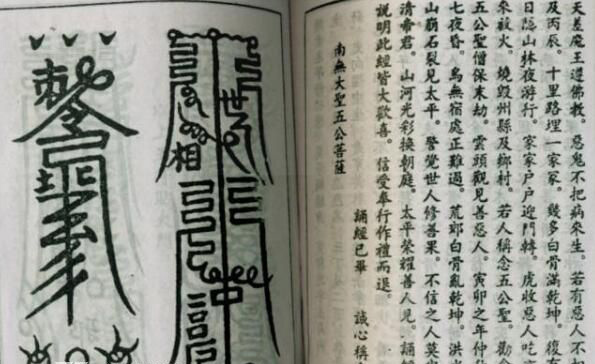 天差魔王遵佛教。惡鬼不把病來生。若有惡人不
及丙辰。十里路埋一家冢。幾多白骨滿乾坤。復有
日隱山林夜游行。家家戶戶迎門轉。虎收惡人吃
來救火。燒毀州縣及鄉村。若人稱念五公聖。勸
五公聖僧保末劫。雲頭觀見善惡人。寅卯之年仲
七夜昏。鳥無宿處正難過。荒郊白骨亂乾坤。洪
山崩石裂見太平。警覺世人修善果。不信之人莫
清帝君。山河光彩換朝庭。太平榮耀善人見。誦
說明此經皆大歡喜。信受奉行作禮而退。
誦經已畢 誠心稱
南無大聖五公菩薩
相
中